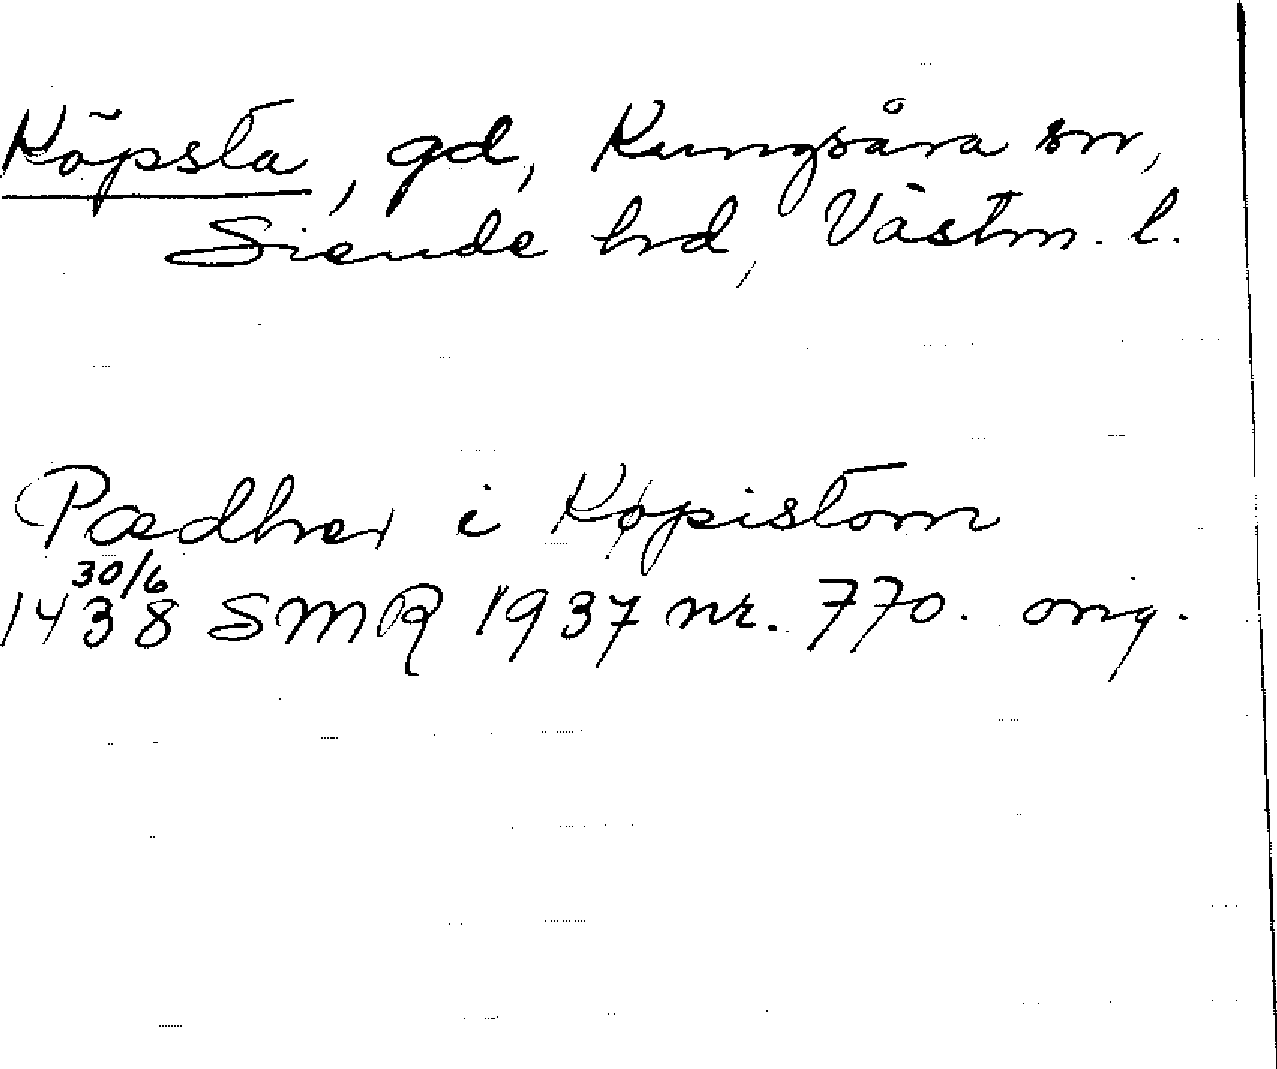 Köpsta, gd, Kungsåra sn,
Siende hd, Västm. l.
Pædher i Køpistom
30/6
1438 SMR 1937 nr. 770. orig.